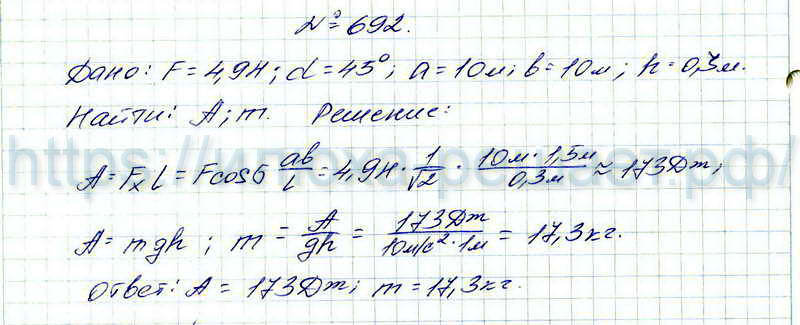 № 692.
Дано: F = 4,9Н; α = 45°; a = 10м; b = 10м; h = 0,3м.
Найти: A; m. Решение:
A = Fₓ L = F cos б ab/L = 4,9Н · 1/√2 · 10м · 1,5м/0,3м ≈ 173Дж;
A = mgh; m = A/gh = 173Дж/10м/с² · 1м = 17,3кг.
Ответ: A = 173Дж; m = 17,3кг.